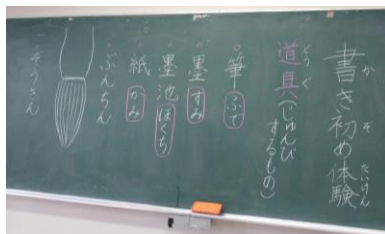 書き初め体験
か ぞ たいけん
道具(じゅんび
どうぐ
するもの)
。筆 ふで
。墨 すみ
。墨池 ぼくち
。紙 かみ
。ぶんちん
。ぞうきん